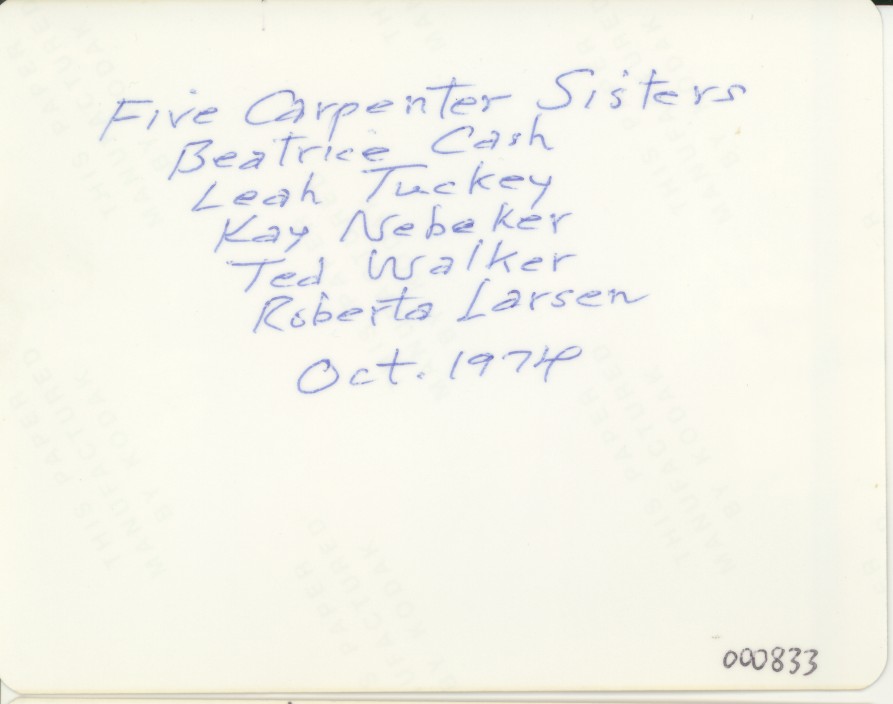 Five Carpenter Sisters
Beatrice Cash
Leah Tuckey
Kay Nebeker
Ted Walker
Roberta Larsen
Oct. 1974
THIS PAPER
MANUFACTURED
BY KODAK
000833